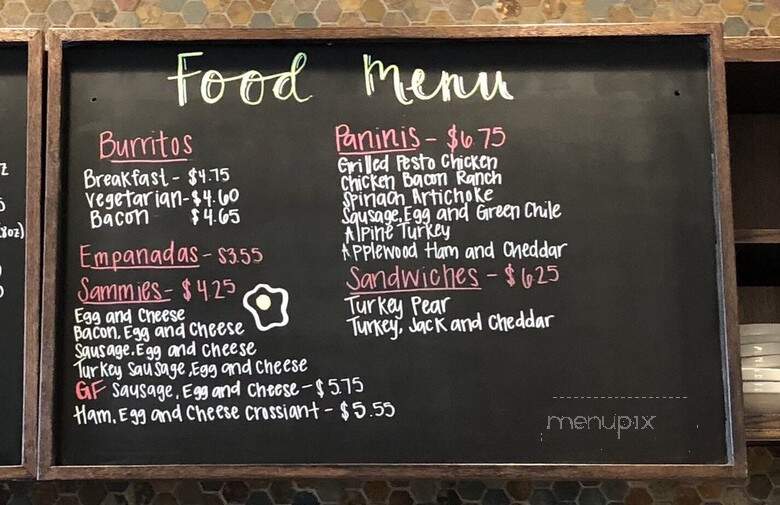 Food Menu
Burritos
Breakfast - $4.75
Vegetarian - $4.60
Bacon $4.65
Empanadas - $3.55
Sammies - $4.25
Egg and Cheese
Bacon, Egg and Cheese
Sausage, Egg and Cheese
Turkey Sausage, Egg and Cheese
GF Sausage, Egg and Cheese - $5.75
Ham, Egg and Cheese Crossiant - $5.55
Paninis - $6.75
Grilled Pesto Chicken
Chicken Bacon Ranch
Spinach Artichoke
Sausage, Egg and Green Chile
Alpine Turkey
Applewood Ham and Cheddar
Sandwiches - $6.25
Turkey Pear
Turkey, Jack and Cheddar
menupix